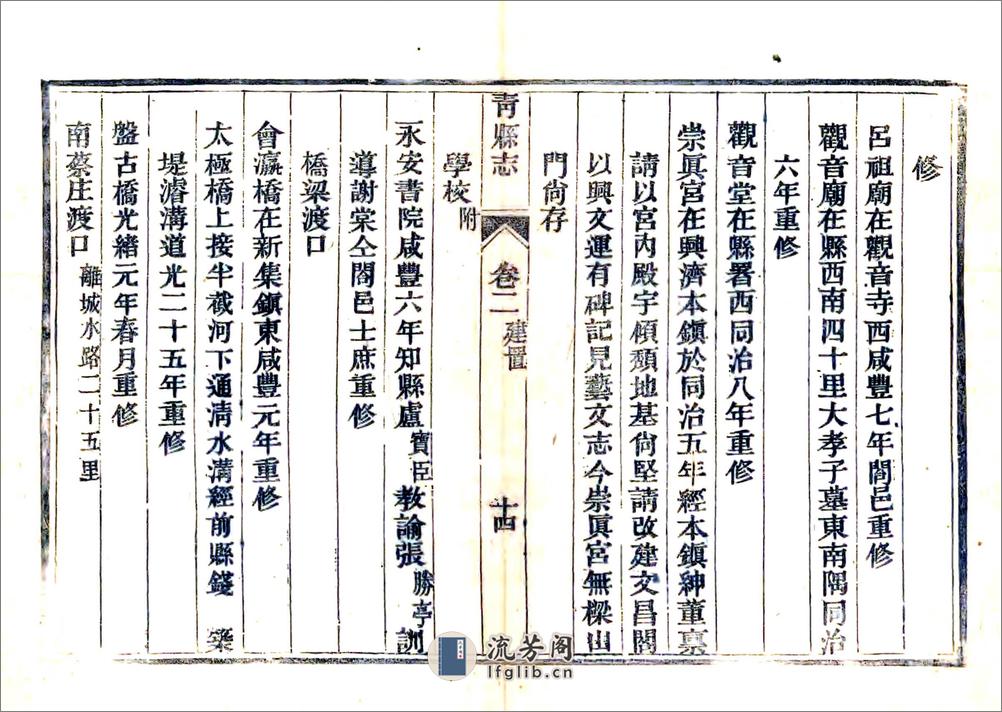 修
呂祖廟在觀音寺西咸豐七年閤邑重修
觀音廟在縣西南四十里大孝子墓東南隅同治
六年重修
觀音堂在縣署西同治八年重修
崇眞宮在興濟本鎮於同治五年經本鎮紳董稟
請以宮內殿宇傾頹地基尙堅請改建文昌閣
以興文運有碑記見藝文志今崇眞宮無樑山
門尙存
青縣志 卷二 建置 十四
學校附
永安書院咸豐六年知縣盧寶臣教諭張勝亭訓
導謝棠仝閤邑士庶重修
橋梁渡口
會瀛橋在新集鎮東咸豐元年重修
太極橋上接半截河下通淸水溝經前縣錢 築
堤濬溝道光二十五年重修
盤古橋光緒元年春月重修
南蔡庄渡口離城水路二十五里
流芳阁
lfglib.cn